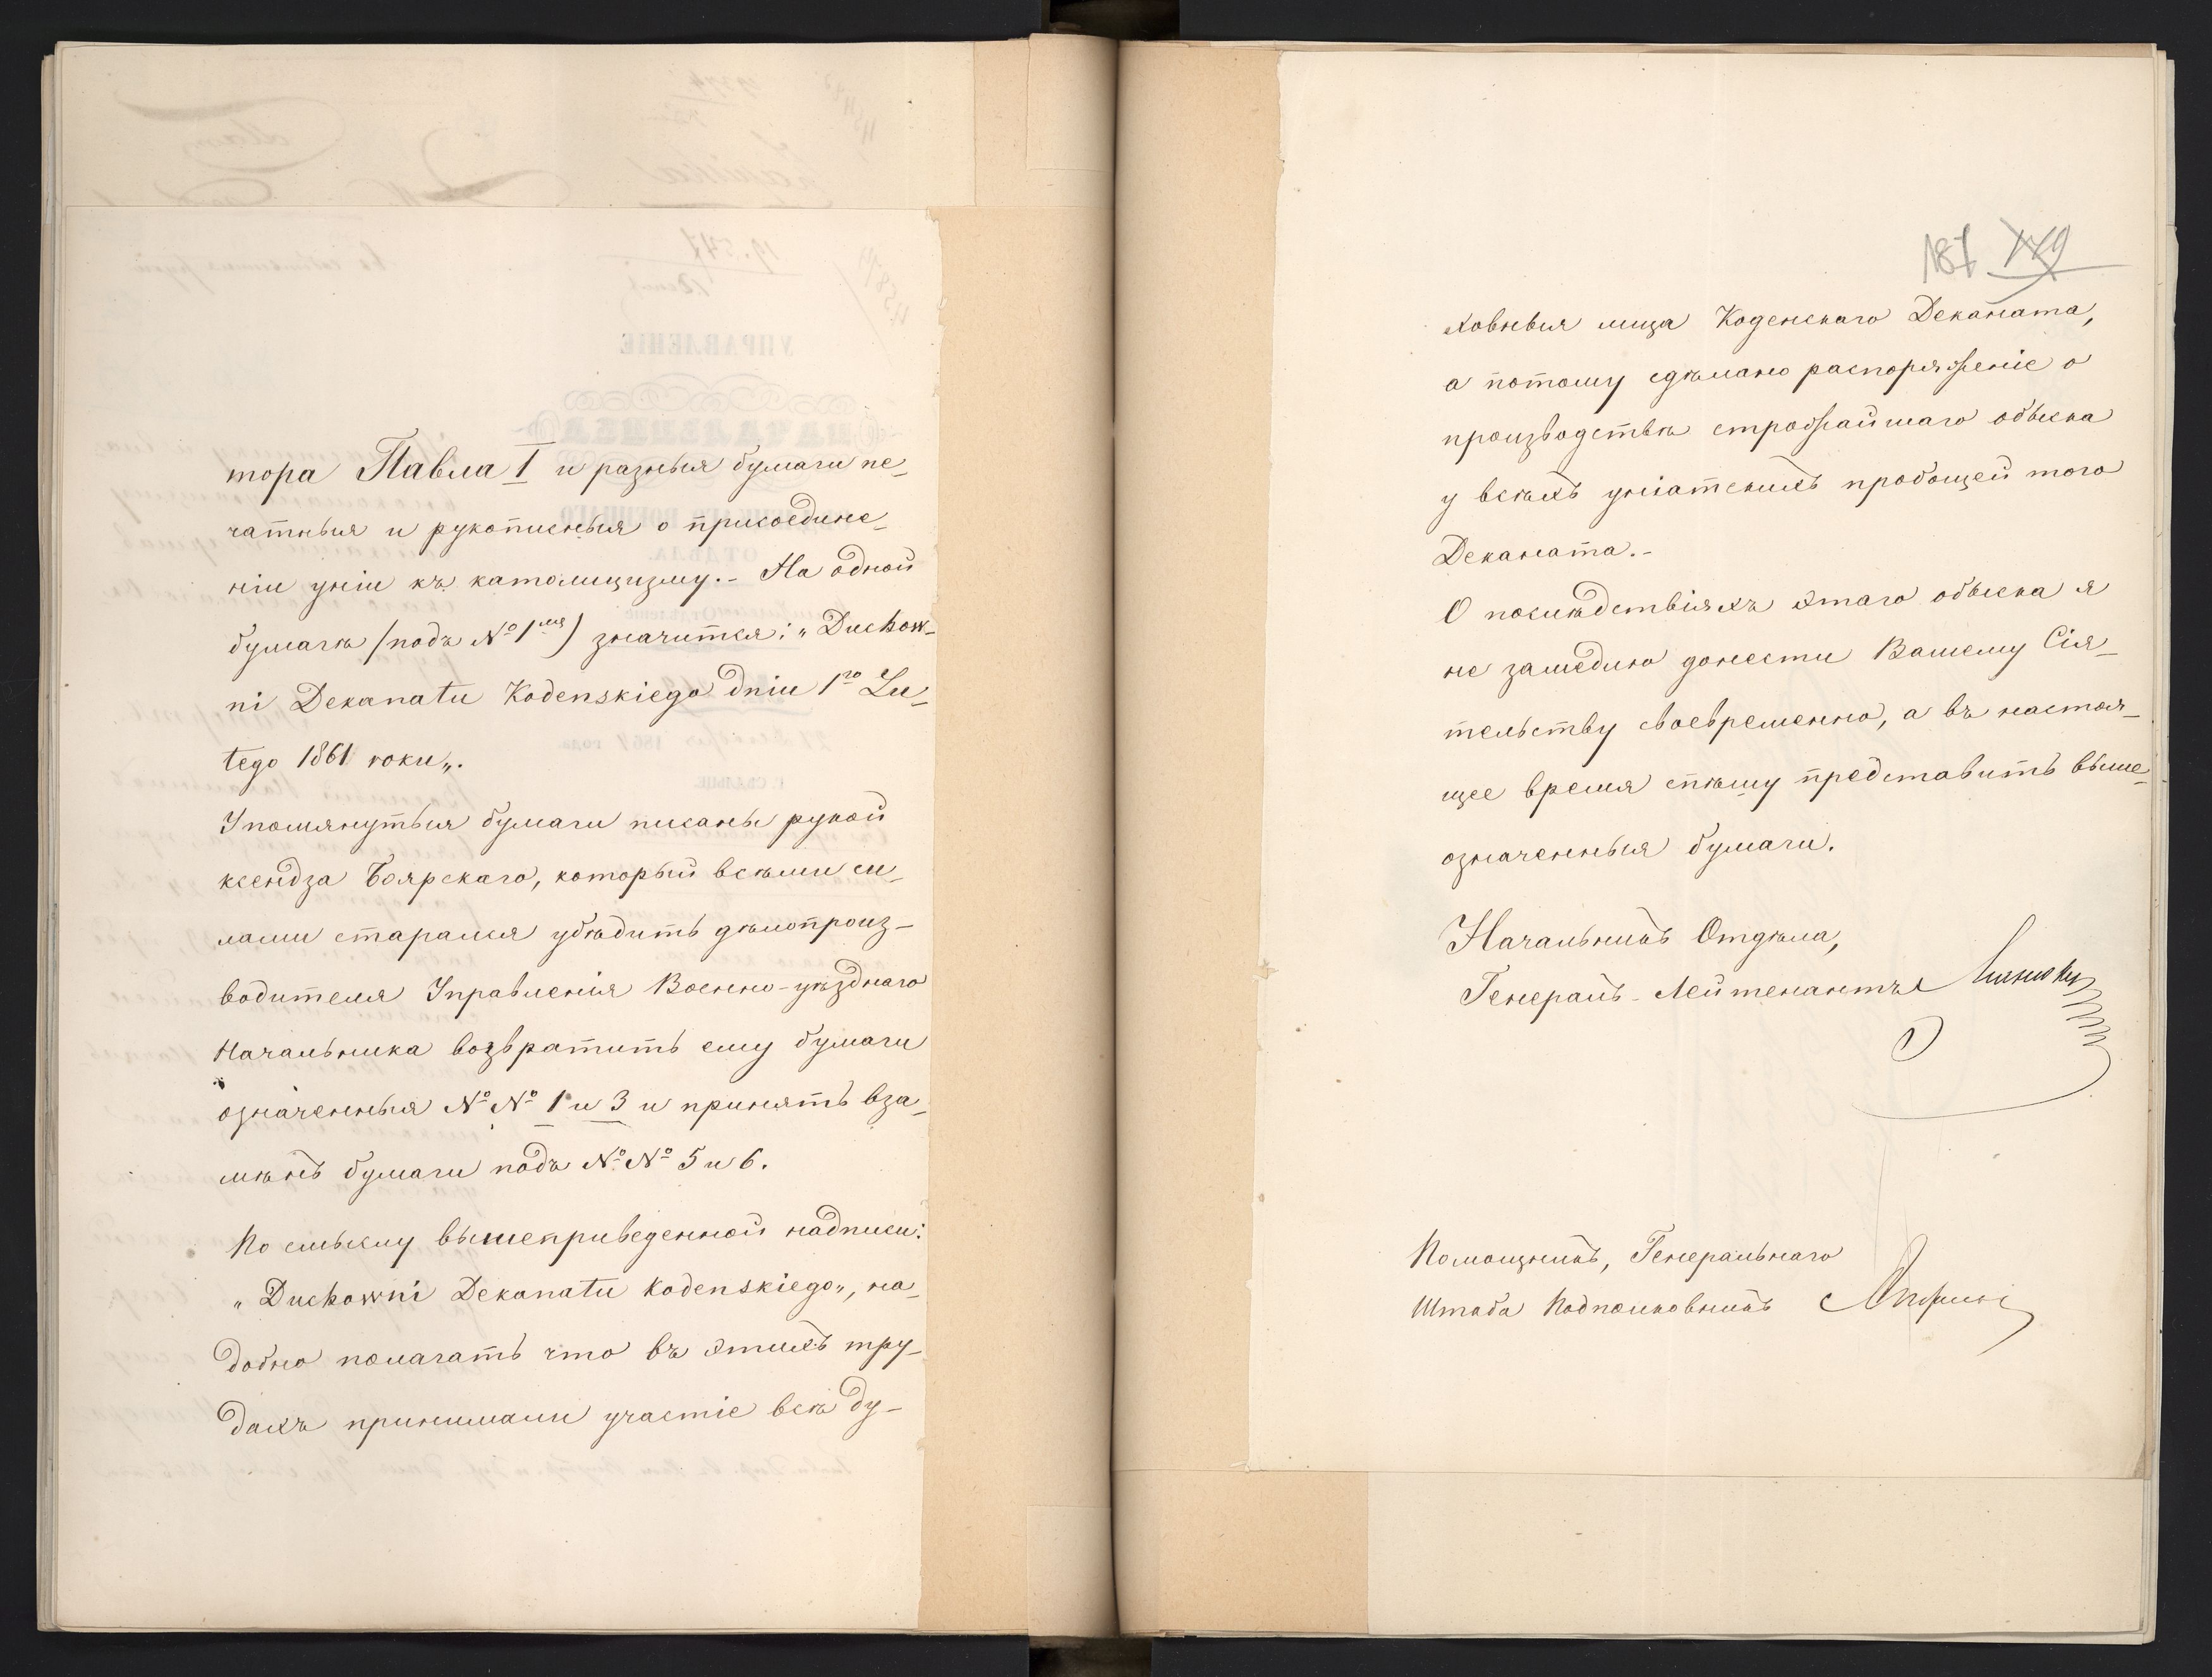 тора Павла I и разныя бумаги пе-
чатныя и рукописныя о присоедине-
ніи уніи къ католицизму.- На одной
бумагѣ (подъ № 1мъ) значится: „Duchow-
ni Dekanatu Kodenskiego dniu 1го Lu-
tego 1861 roku„.
Упомянутыя бумаги писаны рукой
ксендза Боярскаго, который всѣми си-
лами старался убѣдить дѣлопроиз-
водителя Управленія Военно-уѣзднаго
Начальника возвратить ему бумаги
означенныя №№ 1 и 3 и принять вза-
мѣнъ бумаги подъ №№ 5 и 6.
По смыслу вышеприведенной надписи:
„Duchowni Dekanatu Kodenskiego„, на-
добно полагать что въ этихъ тру-
дахъ принимали участіе всѣ ду-
187 179
ховныя лица Коденскаго Деканата,
а потому сдѣлано распоряженіе о
производствѣ строжайшаго обыска
у всѣхъ уніатскихъ пробощей того
Деканата.-
О послѣдствіяхъ этаго обыска я
не замедлю донести Вашему Сія-
тельству своевременно, а въ настоя-
щее время спѣшу представить выше-
означенныя бумаги.
Начальникъ Отдѣла,
Генералъ-Лейтенантъ
Помощникъ, Генеральнаго
Штаба Подполковникъ